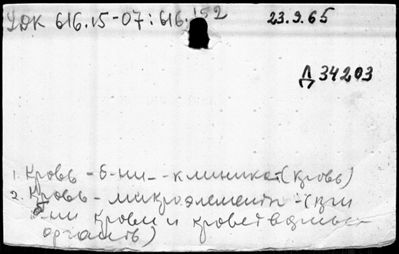 УДК 616.15-07:616.152
23.9.65
Д 34203
1. Кровь - б-ни - клиника (кровь)
2. Кровь - микроэлементы - (при
б-ни крови и кроветворных
органов)